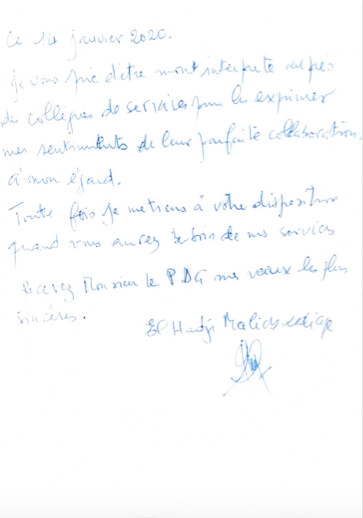 Ce 14 janvier 2020.
Je vous prie d'être mont interprete auprès
des collègues de services pour les exprimer
mes sentiments de leur parfaite collaboration
à mon égard.
Toute fois je metrans à votre disposition
quand vous aurez besoin de mes services
Monsieur le PDG mes vœux les plus
sincères.
El Hadji Malick